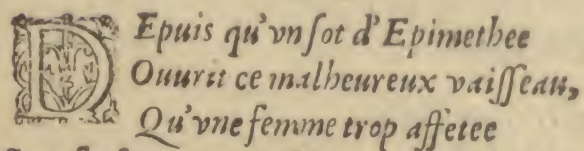 DEpuis qu'vn ſot d'Epimethee
Ouurit ce malheureux vaiſſeau,
Qu'vne femme trop affetee